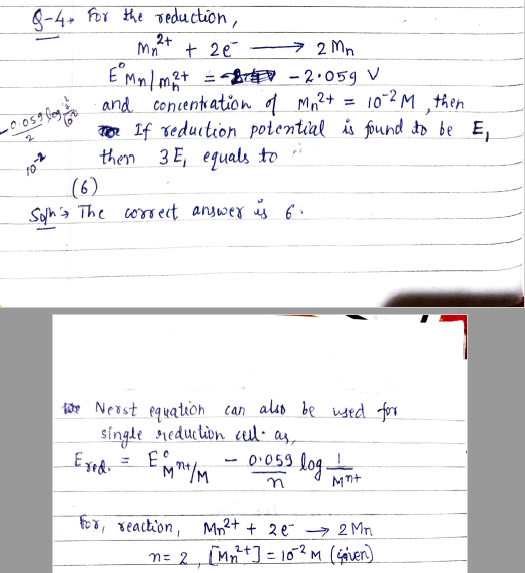 Q-4. For the reduction,
Mn²⁺ + 2e⁻ ⟶ 2Mn
E°Mn|Mn²⁺ = -2.059 V
and concentration of Mn²⁺ = 10⁻² M, then
If reduction potential is found to be E₁
then 3E₁ equals to
-0.059 log 1/10⁻²
2
10⁻²
(6)
Soln:→ The correct answer is 6.
Nerst equation can also be used for
single reduction cell. as,
E red. = E°Mⁿ⁺/M - 0.059/n log 1/Mⁿ⁺
For, reaction, Mn²⁺ + 2e⁻ → 2Mn
n = 2, [Mn²⁺] = 10⁻² M (Given)